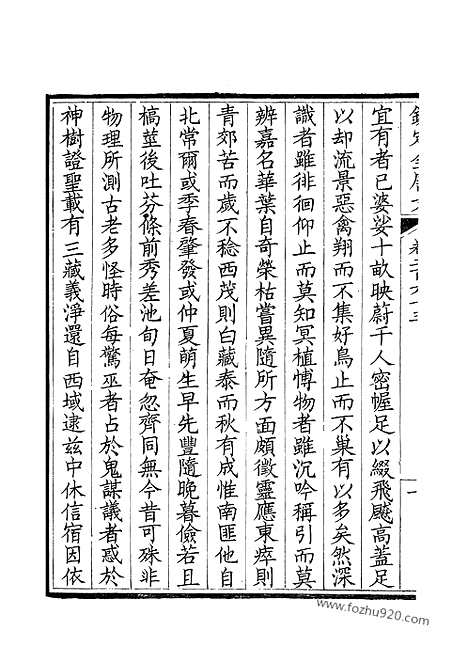 宜有者已婆娑十畝映蔚千人密幄足以綴飛飇高蓋足
以却流景惡禽翔而不集好鳥止而不巢有以多矣然深
識者雖徘徊仰止而莫知冥植博物者雖沉吟稱引而莫
辨嘉名華葉自奇榮枯嘗異隨所方面頗徵靈應東瘁則
青郊苦而歲不稔西茂則白藏泰而秋有成惟南匪他自
北常爾或季春肇發或仲夏萌生早先豐隨晚暮儉若且
槁莖後吐芬條前秀差池旬日奄忽齊同無今昔可殊非
物理所測古老多怪時俗每驚巫者占於鬼謀議者惑於
神樹證聖載有三藏義淨還自西域逮兹中休信宿因依
www.fozhu920.com